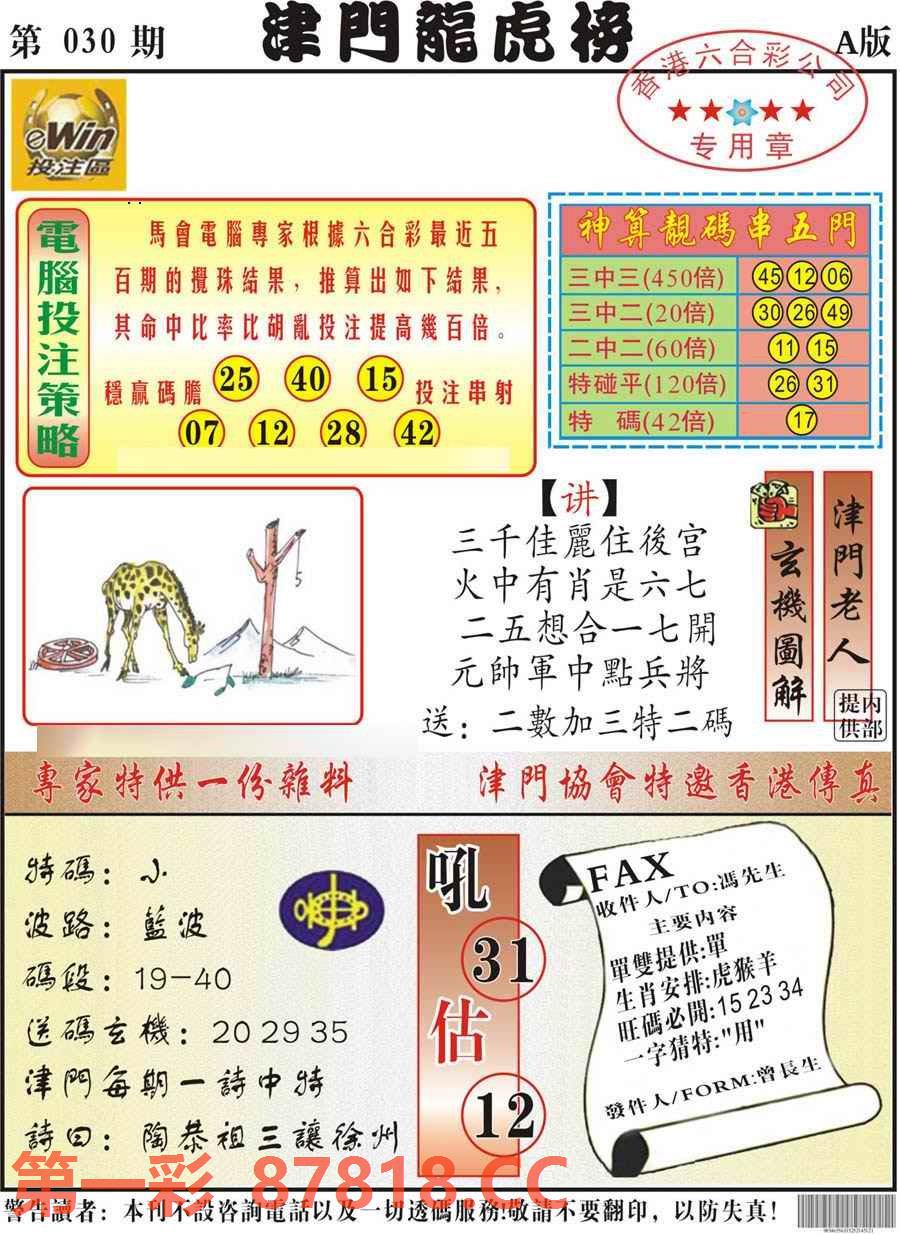 第 030 期
津門龍虎榜
A版
香港六合彩公司
专用章
eWin
投注區
電腦投注策略
馬會電腦專家根據六合彩最近五
百期的攪珠結果，推算出如下結果，
其命中比率比胡亂投注提高幾百倍。
穩贏碼膽 25 40 15 投注串射
07 12 28 42
神算靚碼串五門
三中三(450倍) 45 12 06
三中二(20倍) 30 26 49
二中二(60倍) 11 15
特碰平(120倍) 26 31
特 碼(42倍) 17
5
【讲】
三千佳麗住後宫
火中有肖是六七
二五想合一七開
元帥軍中點兵將
送：二數加三特二碼
玄機圖解
津門老人
提供内部
專家特供一份雜料
津門協會特邀香港傳真
特碼：小
波路：藍波
碼段：19－40
送碼玄機：20 29 35
津門每期一詩中特
詩曰：陶恭祖三讓徐州
吼
31
估
12
FAX
收件人/TO:馮先生
主要内容
單雙提供:單
生肖安排:虎猴羊
旺碼必開:15 23 34
一字猜特:"用"
發件人/FORM:曾長生
第一彩 87818.CC
警告讀者：本刊不設咨詢電話以及一切透碼服務!敬請不要翻印，以防失真！